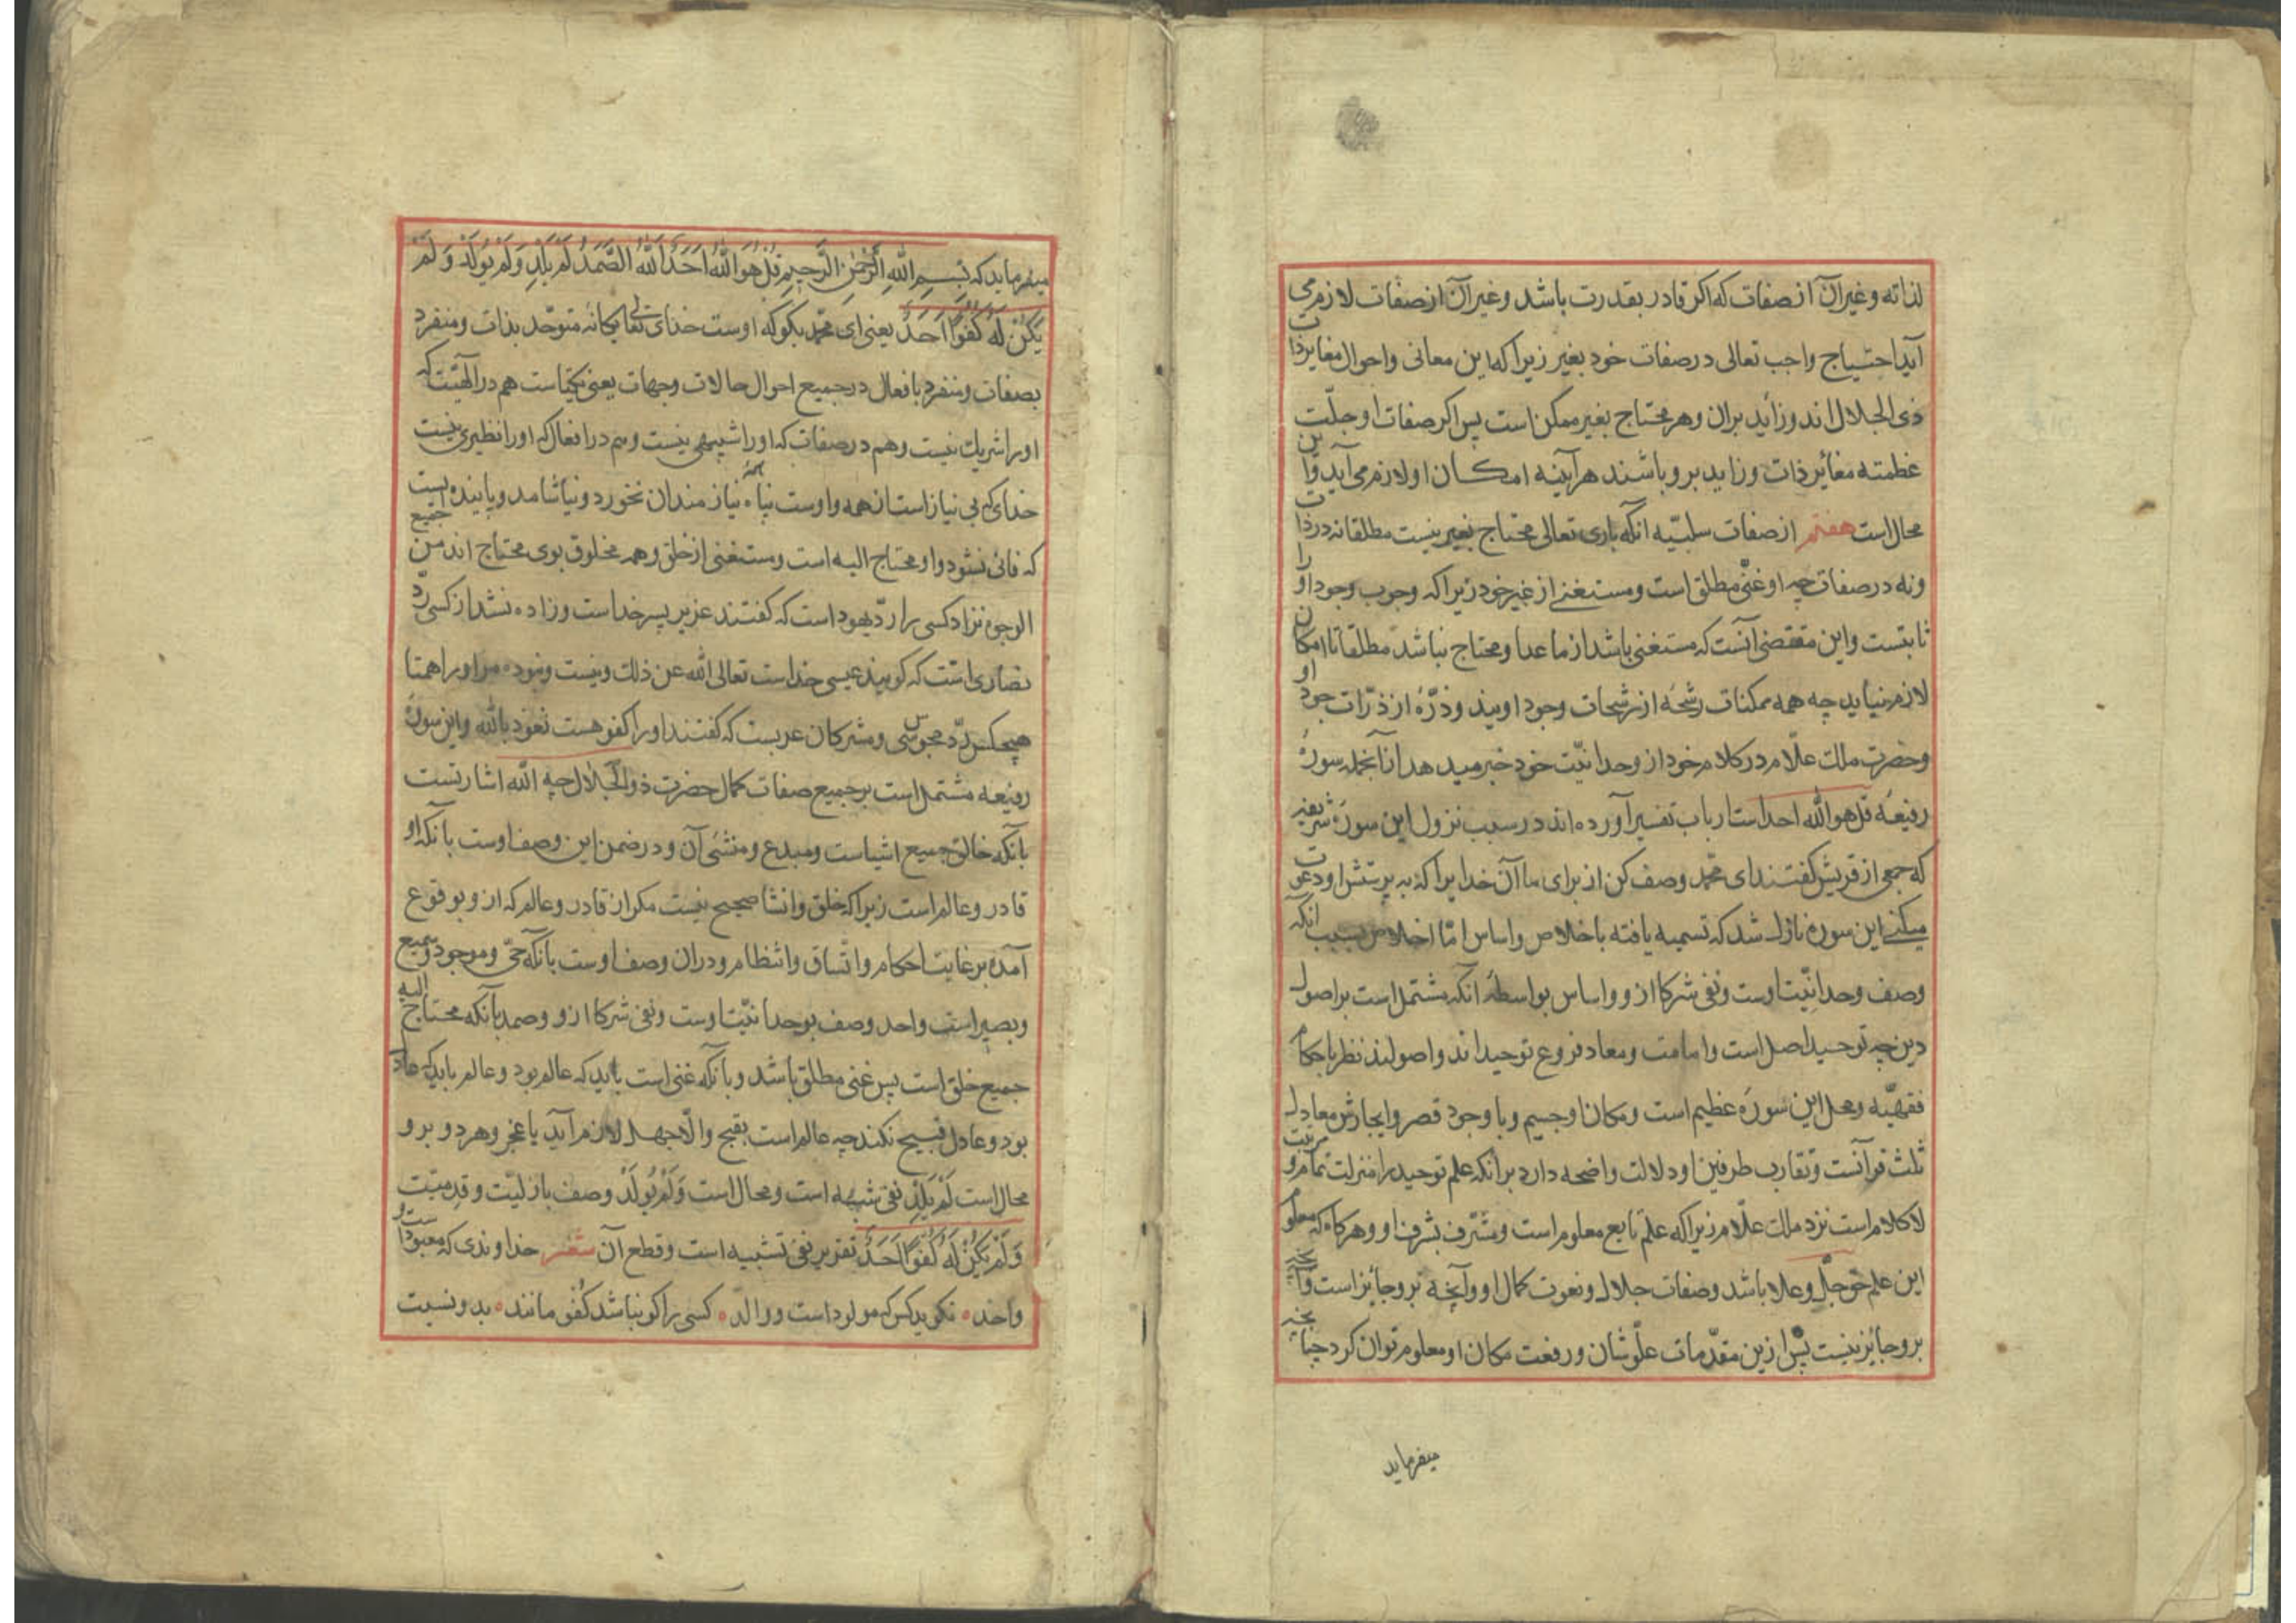 لذاته وغیر آن از صفات که اکر قادر بقدرت باشد وغیر آن از صفات لازم می
آید احتیاج واجب تعالی در صفات خود بغیر زیرا که این معانی واحوال مغایر ذات
ذی الجلال اند وزاید بران وهر محتاج بغیر ممکن است پس اکر صفات او جلّت
عظمته مغائر ذات وزاید برو باشند هرآینه امکان او لازم می آید واین
محال است هفتم از صفات سلبیّه آنکه باری تعالی محتاج بغیر نیست مطلقا نه در ذات
ونه در صفات چه او غنّی مطلق است ومستغنی از غیر خود زیرا که وجوب وجود او را
ثابتست واین مقتضی آنست که مستغنی باشد از ما عدا ومحتاج نباشد مطلقا تا امکان
لازم نیاید چه همه ممکنات رشحهٔ از رشحات وجود اویند وذرّهٔ از ذرّات جود او
وحضرت ملک علّام در کلام خود از وحدانیّت خود خبر میدهد از آنجمله سورهٔ
رفیعهٔ قل هو الله احد است ارباب تفسیر آورده اند در سبب نزول این سورهٔ شریفه
که جمعی از قریش کفتند ای محمّد وصف کن از برای ما آن خدایرا که به پرستش او دعوت
میکنی این سوره نازل شد که تسمیه یافته باخلاص واساس امّا اخلاص بسبب آنکه
وصف وحدانیّت اوست ونفی شرکا ازو واساس بواسطهٔ آنکه مشتمل است بر اصول
دین چه توحید اصل است وامامت ومعاد فروع توحید اند واصولند نظر باحکام
فقهیّه ومحل این سورهٔ عظیم است ومکان او جسیم وبا وجود قصر وایجازش معادل
ثلث قرآنست وتقارب طرفین او دلالت واضحه دارد برآنکه علم توحید را منزلت تمام ومرتبت
لا کلام است نزد ملک علّام زیرا که علم تابع معلوم است ومشّرف بشرف او وهرکاه که معلوم
این علم حق جلّ وعلا باشد وصفات جلال ونعوت کمال او وآنچه برو جائز است وآنچه
برو جائز نیست پس ازین مقدّمات علّو شان ورفعت مکان او معلوم توان کرد چنانچه
میفرماید
میفرماید که بسم الله الرحمن الرحیم قل هو الله احد الله الصمد لم یلد ولم یولد ولم
یکن له کفوا احد یعنی ای محمّد بکو که اوست خدای تعالی یکانه متوحّد بذات ومنفرد
بصفات ومتفرد بافعال در جمیع احوال حالات وجهات یعنی یکتاست هم در الهیّت که
اورا شریک نیست وهم در صفات که اورا شبیهی نیست وهم در افعال که اورا نظیری نیست
خدای که بی نیاز است از همه واوست پناه همه نیازمندان نخورد ونیاشامد وپاینده ایست
که فانی نشود واو محتاج الیه است ومستغنی از خلق وهمه مخلوق بوی محتاج اند من جمیع
الوجوه نزاد کسی را ردّ یهود است که کفتند عزیر پسر خداست وزاده نشد از کسی ردّ
نصاری است که کویند عیسی خداست تعالی الله عن ذلک ونیست ونبوده مر اورا همتا
هیچکس ردّ مجوسی ومشرکان عربست که کفتند اورا کفو هست نعوذ بالله واین سورهٔ
رفیعه مشتمل است بر جمیع صفات کمال حضرت ذو الجلال چه الله اشارتست
بآنکه خالق جمیع اشیاست ومبدع ومنشی آن ودر ضمن این وصف اوست بآنکه او
قادر وعالم است زیرا که خلق وانشا صحیح نیست مکر از قادر وعالم که ازو بوقوع
آمده بر غایت احکام واتّساق وانتظام ودران وصف اوست بآنکه حیّ وموجود وسمیع
وبصیر است واحد وصف بوحدانیّت اوست ونفی شرکا ازو وصمد بآنکه محتاج الیه
جمیع خلق است پس غنی مطلق باشد وبآنکه غنی است باید که عالم بود وعالم باید که عادل
بود وعادل قبیح نکند چه عالم است بقبح والّا جهل لازم آید یا عجز وهر دو برو
محال است لم یلد نفی شبه است ومحال است ولم یولد وصف بازلیّت وقدمیّت
ولم یکن له کفوا احد تقریر نفی تشبیه است وقطع آن شعر خداوندی که معبود است و
واحد نکوید کس که مولود است ووالد کسی را کو نباشد کفو مانند بدو نسبت